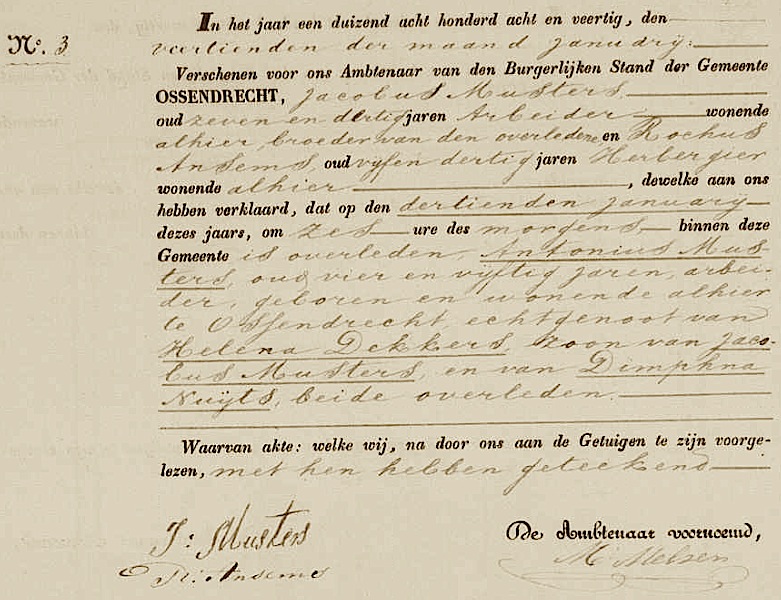 In het jaar een duizend acht honderd acht en veertig, den
N.o 3 veertienden der maand January:
Verschenen voor ons Ambtenaar van den Burgerlijken Stand der Gemeente
OSSENDRECHT, Jacobus Musters
oud zeven en dertig jaren Arbeider wonende
alhier, broeder van den overledene en Rochus
Ansems, oud vyf en dertig jaren Herbergier
wonende alhier, dewelke aan ons
hebben verklaard, dat op den dertienden January
dezes jaars, om zes ure des morgens, binnen deze
Gemeente is overleden, Antonius Mus-
ters, oud vier en vyftig jaren, arbei-
der, geboren en wonende alhier
te Ossendrecht echtgenoot van
Helena Dekkers, zoon van Jaco-
bus Musters, en van Dimphna
Nuÿts, beide overleden.
Waarvan akte: welke wij, na door ons aan de Getuigen te zijn voorge-
lezen, met hen hebben geteekend
J: Musters
R: Ansems
De Ambtenaar voornoemd,
M Melsen